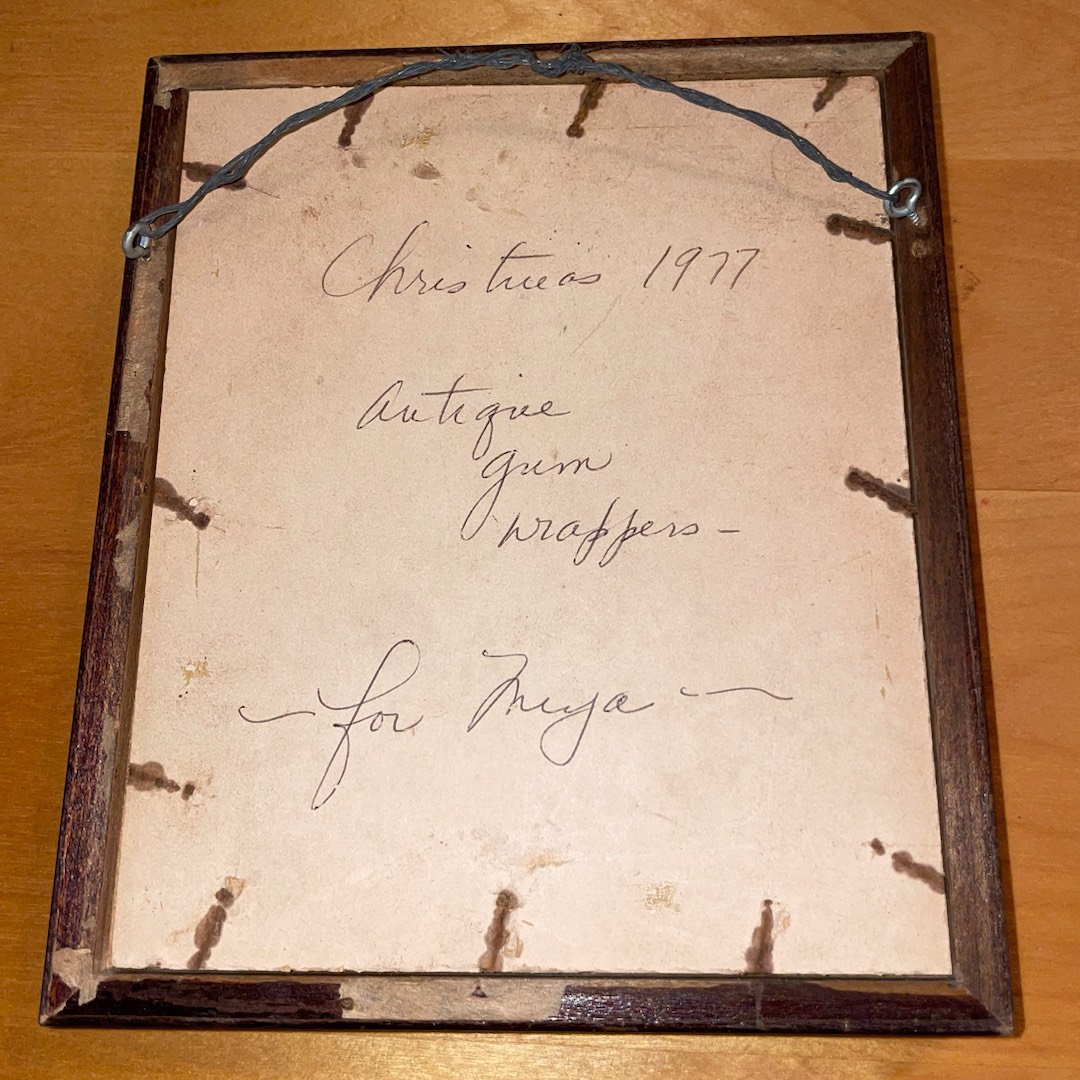 Christmas 1977
Antique
gum
wrappers-
~ for Meya ~